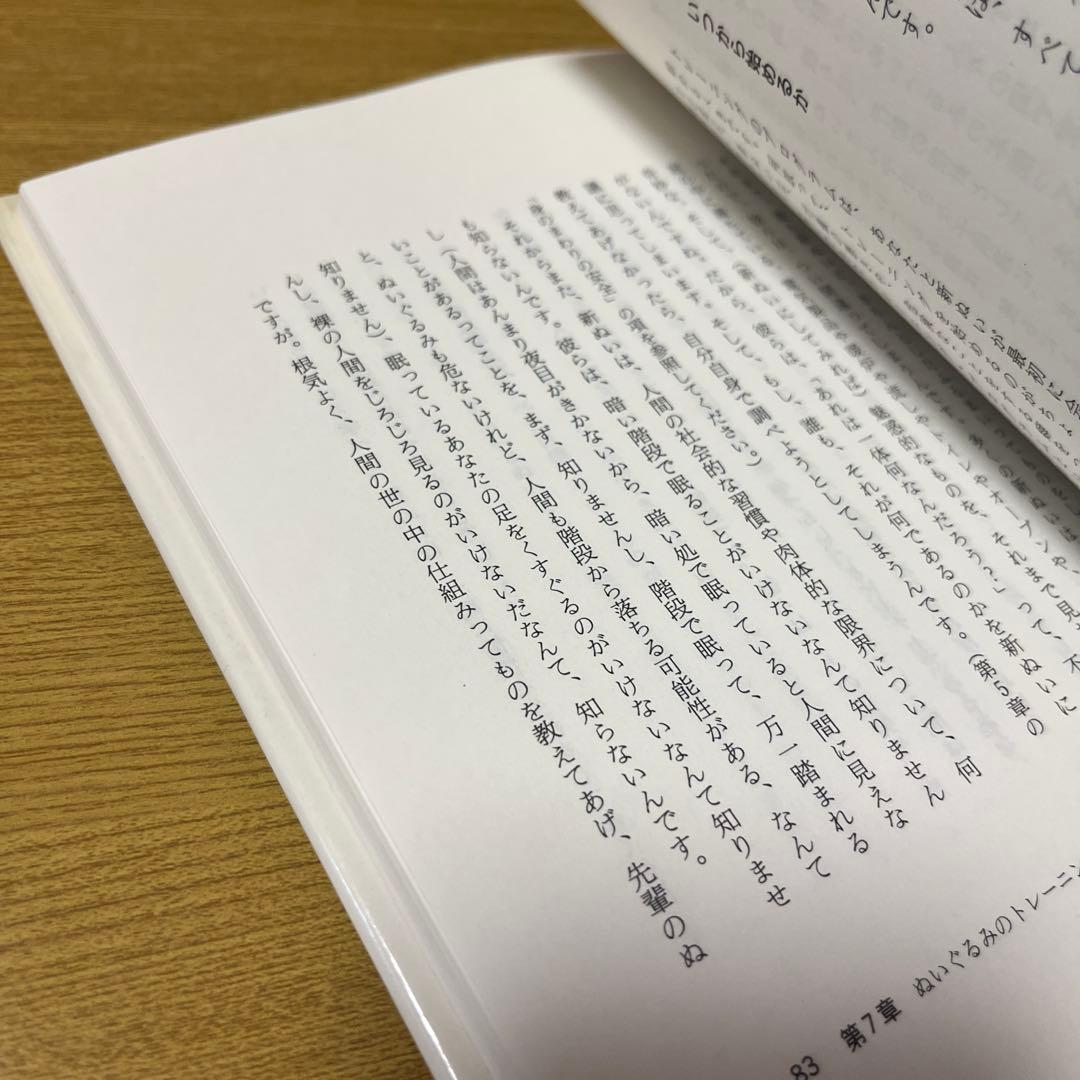 は、すべて
んです。
いつから始めるか
トレーニングのプログラムは、あなたと新ぬいが最初に会
多くの新ぬいは
魅惑的なものを、それまで見
「あれは一体何なんだろう？」って、不
かないんですね。だから、彼らは、もし、誰も、それが何であるのかを新ぬいに
教えてあげなかったら、自分自身で調べようとしてしまうんです。（第5章の
「身のまりの安全」の項を参照してください。）
それからまた、新ぬいは、人間の社会的な習慣や肉体的な限界について、何
も知らないんです。彼らは、暗い階段で眠ることがいけないなんて知りません
し（人間はあんまり夜目がきかないから、暗い処で眠っていると人間に見えな
いことがあるってことを、まず、知りませんし、階段で眠って、万一踏まれる
と、ぬいぐるみも危ないけれど、人間も階段から落ちる可能性がある、なんて
知りません）、眠っているあなたの足をくすぐるのがいけないなんて知りませ
んし、裸の人間をじろじろ見るのがいけないだなんて、知らないんです。
ですが。根気よく、人間の世の中の仕組みってものを教えてあげ、先輩のぬ
83　第7章　ぬいぐるみのトレーニン